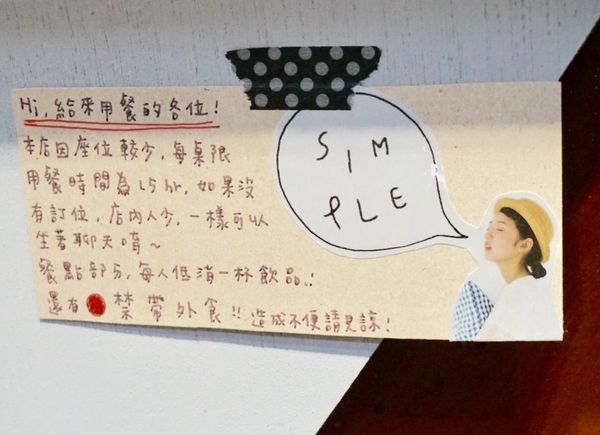 Hi, 給來用餐的各位!
本店因座位較少, 每桌限
用餐時間為1.5hr, 如果沒
有訂位, 店內人少, 一樣可以
坐著聊天唷~
餐點部分, 每人低消一杯飲品.!
還有 禁帶外食!! 造成不便請見諒!
SIM
PLE